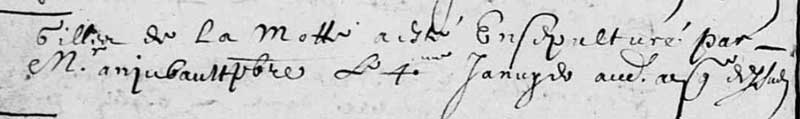 Gilles de La Motte a esté Ensepulturé par
Mr. anjubault pbre Le 4me Janvyer aud. an